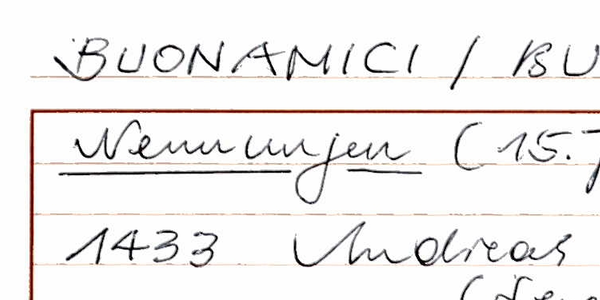 BUONAMICI / BU
Nennungen (15.
1433 Andreas